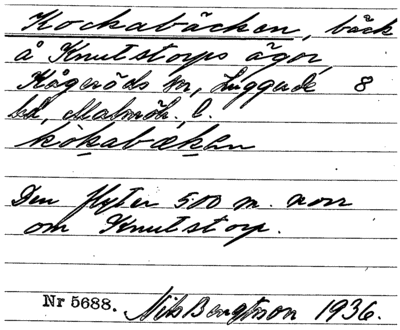 Kockabäcken, bäck
å Knutstorps ägor,
Kågeröds sn, Luggude 8
hd, Malmöh. l.
kòkabækən
Den flyter 500 m. norr
om Knutstorp.
Nr 5688. Nils Bengtsson 1936.